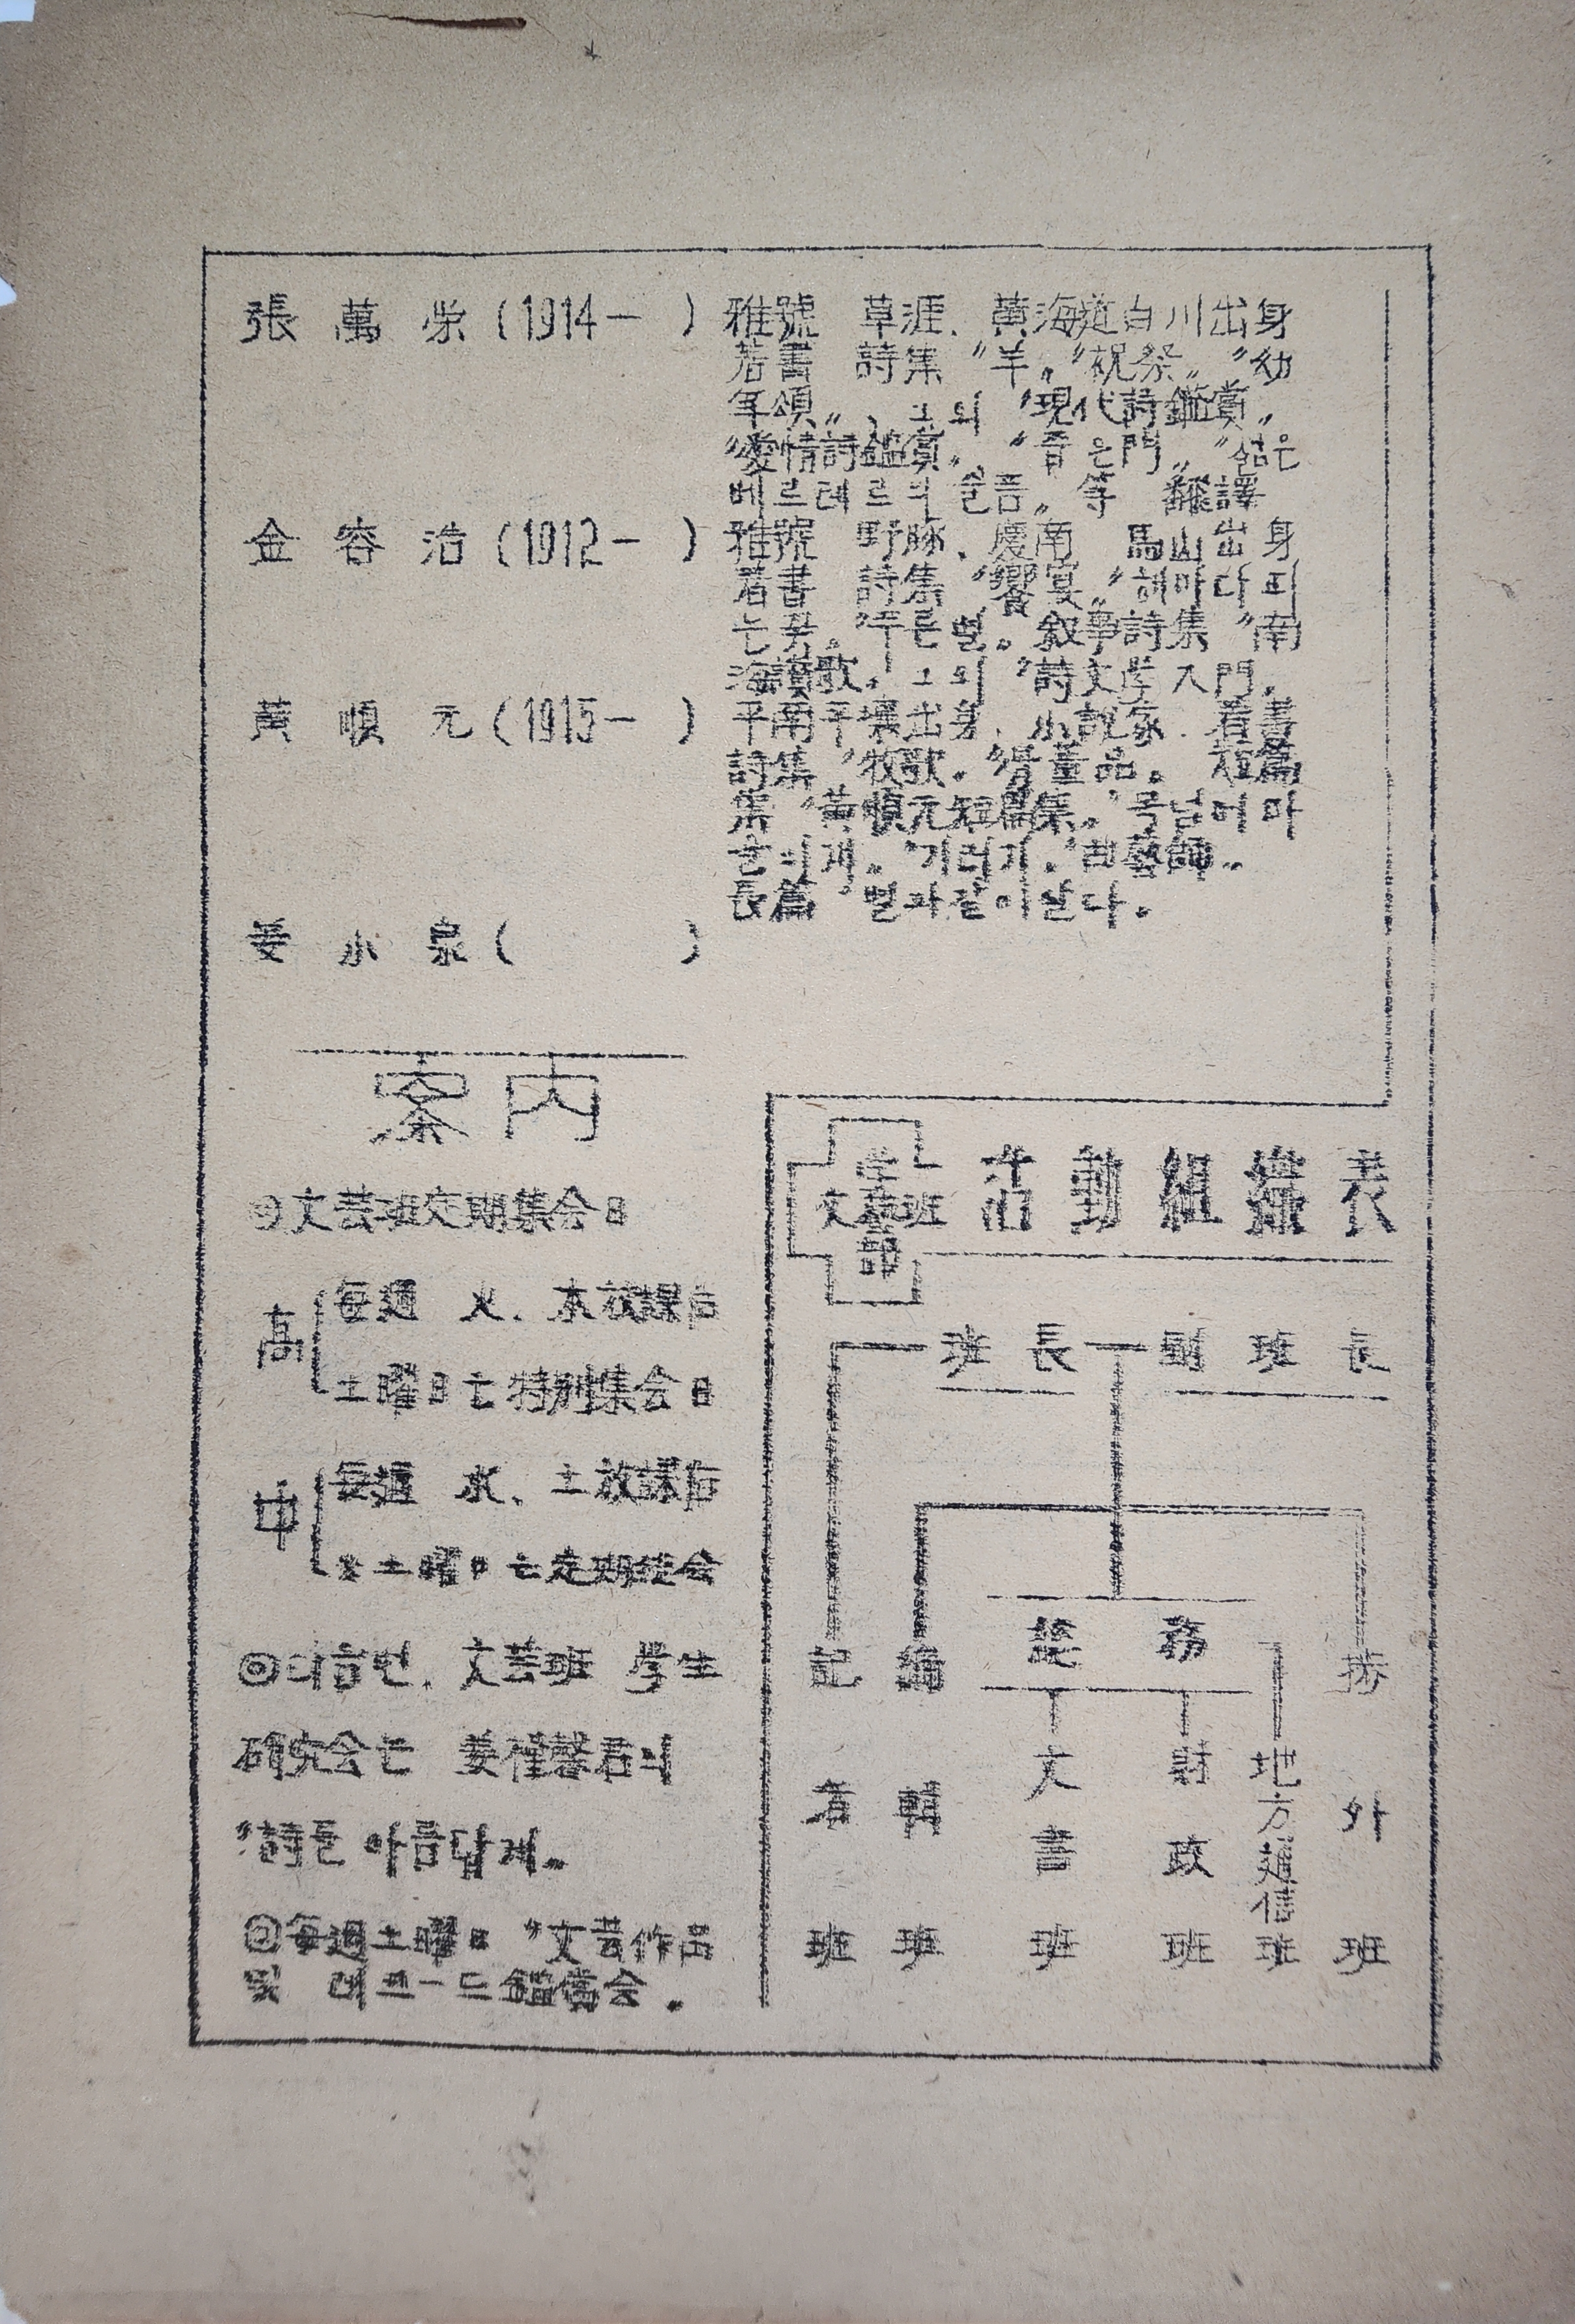 張萬栄 (1914— ) 雅號 草涯. 黃海道白川出身
著書 詩集 "羊" "祝祭" "幼
年頌", 그외 "現代詩鑑賞"
"愛情詩鑑賞" "좁은門" "젊은
베르테르의 슬픔" 等 飜譯
金容浩 (1912— ) 雅號 野豚. 慶南 馬山出身
著書 詩集 "饗宴" "해마다 피
는꽃" "푸른별" 叙事詩集 "南
海讃歌" 그외 "詩文学入門"
黃順元 (1915— ) 平南平壤出身. 小說家. 著書
詩集 "牧歌" "骨董品" 短篇
集 "黃順元短篇集" "목넘이마
을의개" "기러기" "曲藝師"
長篇 "별과같이살다"
姜小泉 ( )
案內
◎文芸班定期集会日
高 每週 火. 木放課后
土曜日는特別集会日
中 每週 水. 土放課后
土曜日는定期集会
◎다음번. 文芸班 学生
研究会는 姜 君의
"詩는 아름답게"
◎每週土曜日 "文芸作品
및 레코ー드鑑賞会.
学芸部
文芸班 活動組織表
班長 副班長
總務
記者班
編輯班
文書班
財政班
地方通信班
涉外班